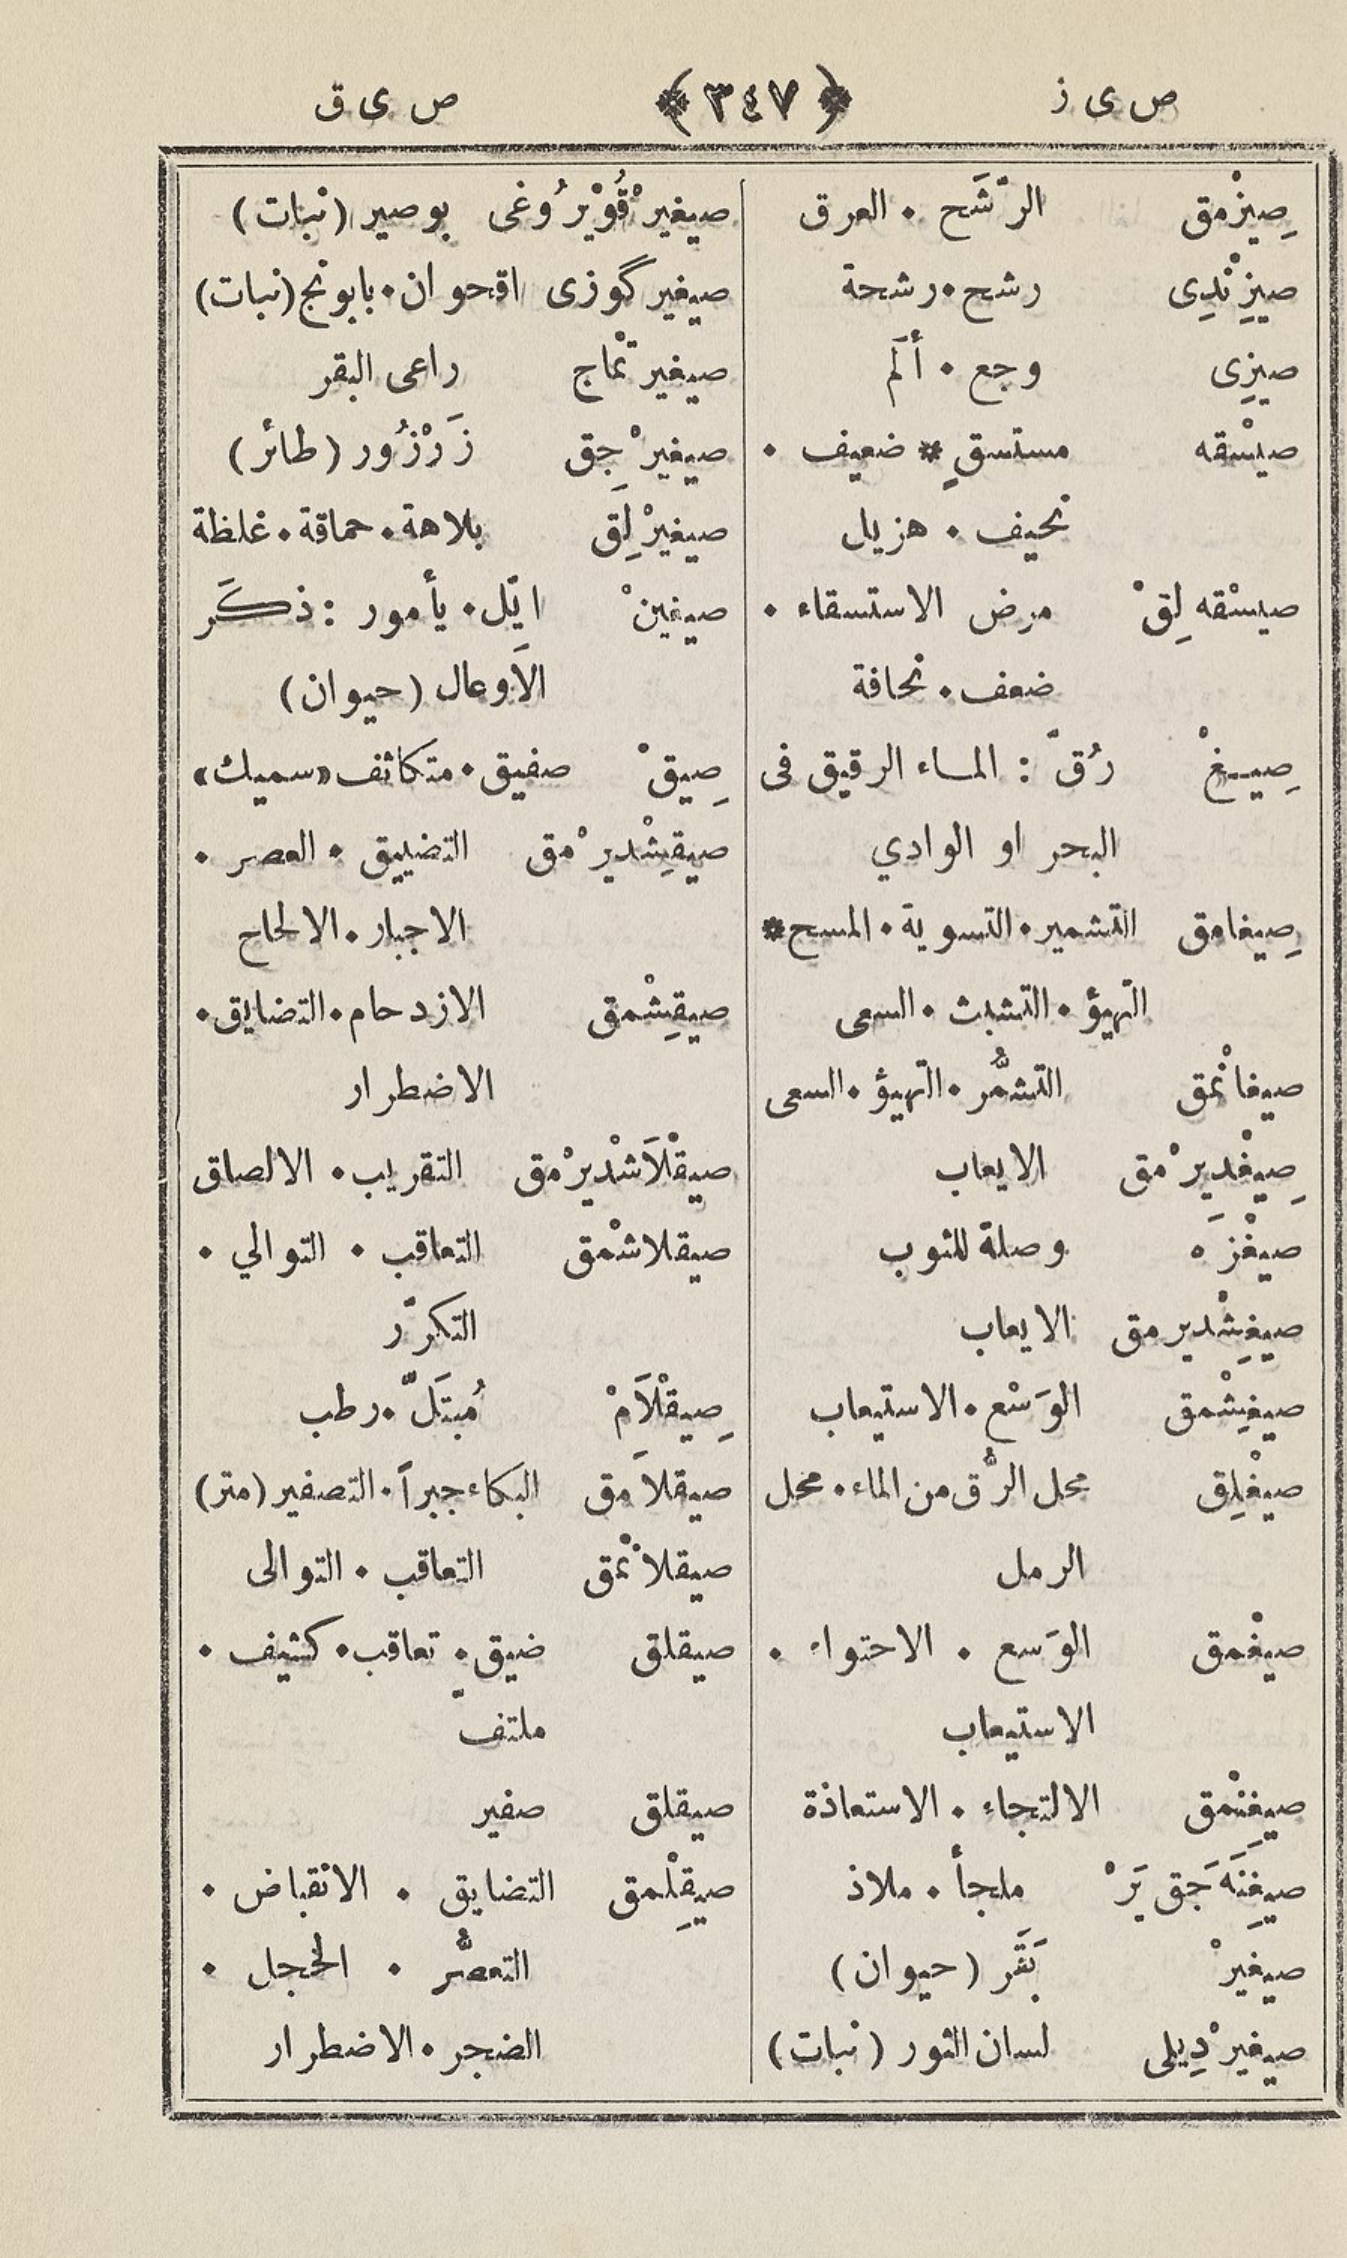 ص ى ز ﴿ ٣٤٧ ﴾ ص ى ق
صِيزْمق الرَّشَح • العرق
صيزِنْدِى رشح • رشحة
صيزِى وجع • أَلَم
صيسْقه مستسقٍ * ضعيف •
نحيف • هزيل
صيسْقه لِقْ مرض الاستسقاء •
ضعف • نحافة
صِيـغْ رُقّ : الماء الرقيق فى
البحر او الوادي
صِيغامق التشمير • التسوية • المسح *
التهيؤ • التشبث • السعى
صيغانْمق التشمُّر • التهيؤ • السعى
صِيغْدِيرْمق الايعاب
صيغْزَه وصلة للثوب
صيغِشْديرمق الايعاب
صيغِشْمق الوَسْع • الاستيعاب
صيغْلِق محل الرُّق من الماء • محل
الرمل
صيغْمق الوَسع • الاحتواء •
الاستيعاب
صيغِنْمق الالتجاء • الاستعاذة
صيغِنَهجَق يَرْ ملجأ • ملاذ
صيغيرْ بَقَر (حيوان)
صيغيرْدِيلى لسان الثور (نبات)
صيغيرْقُوْيرُوغى بوصير (نبات)
صيغير گوزى اقحوان • بابونج (نبات)
صيغيرتْماج راعى البقر
صيغيرْجِق زَرْزُور (طائر)
صيغيرْلِق بلاهة • حماقة • غلظة
صيغينْ ايّل • يأمور : ذكَر
الاَوعال (حيوان)
صِيقْ صفيق • متكاثف «سميك»
صيقِشْديرْمق التضييق • العصر •
الاجبار • الالحاح
صيقِشْمق الازدحام • التضايق •
الاضطرار
صيقْلاَشْديرْمق التقريب • الالصاق
صيقلاشْمق التعاقب • التوالي •
التكرّر
صِيقْلاَمْ مُبتَلّ • رطب
صيقلاَمق البكاء جبراً • التصفير (متر)
صيقلانْمق التعاقب • التوالى
صيقلق ضيق • تعاقب • كثيف •
ملتفّ
صيقلق صفير
صيقِلْمق التضايق • الانقباض •
التعصُّر • الخجل •
الضجر • الاضطرار